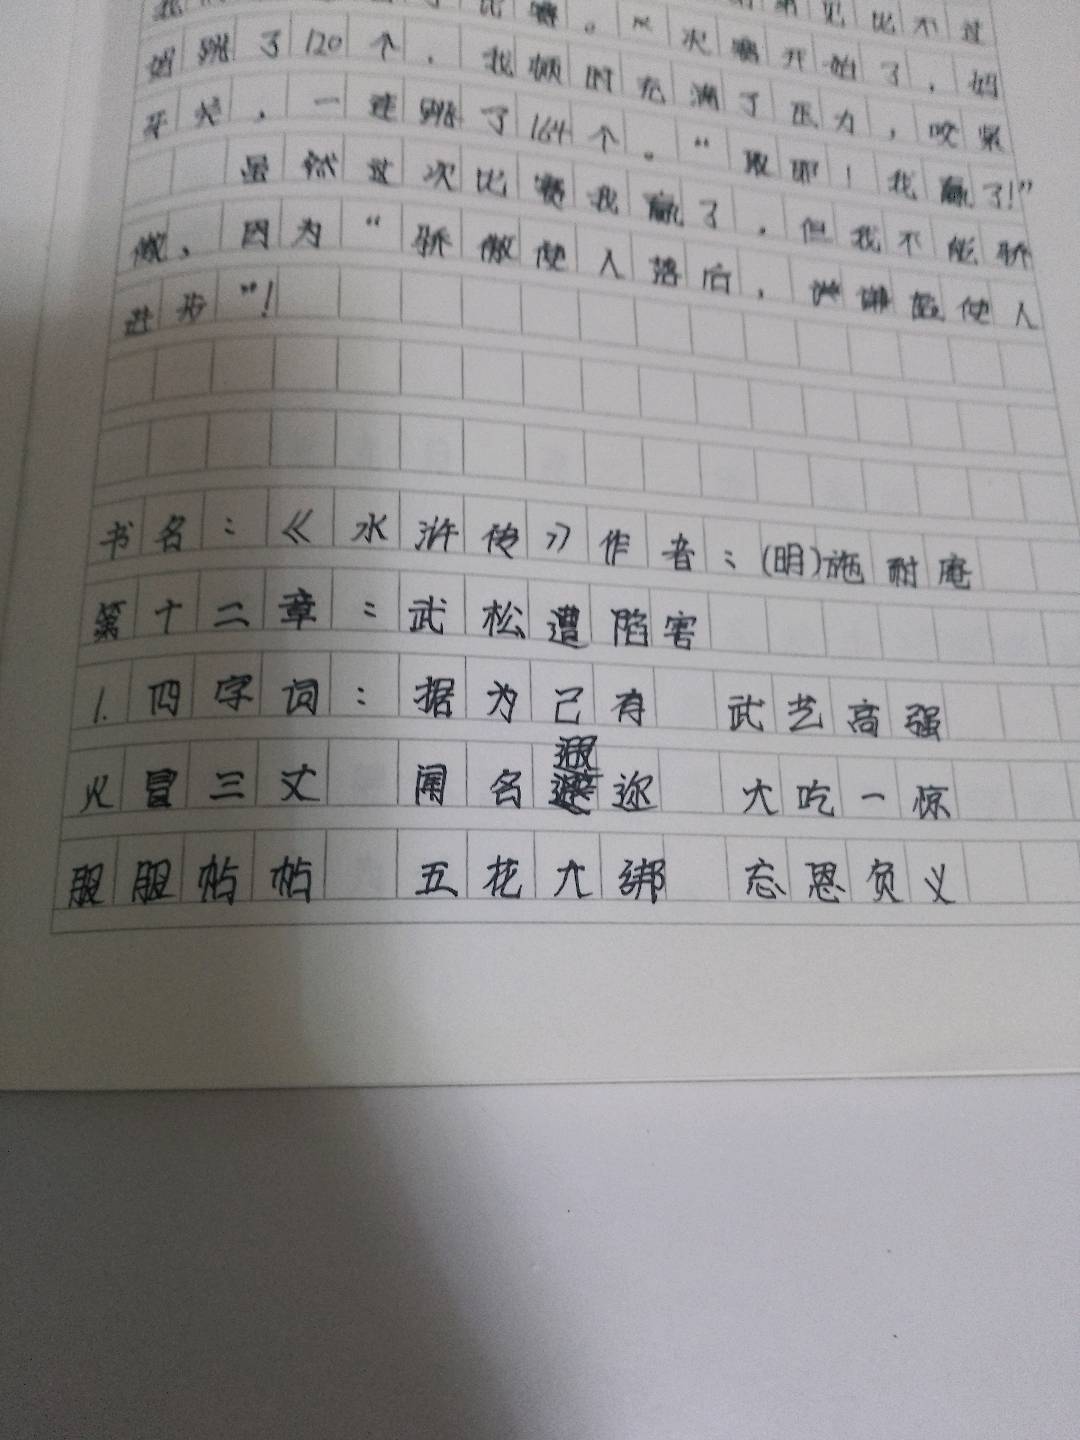 比赛。
比不过
妈跳了120个，我顿时充满了压力，咬紧
牙关，一连跳了164个。“取耶！我赢了！”
虽然这次比赛我赢了，但我不能骄
傲，因为“骄傲使人落后，谦虚使人
进步”！
书名：《水浒传》作者：(明)施耐庵
第十二章：武松遭陷害
1.四字词：据为己有 武艺高强
火冒三丈 闻名遐迩 大吃一惊
服服帖帖 五花大绑 忘恩负义